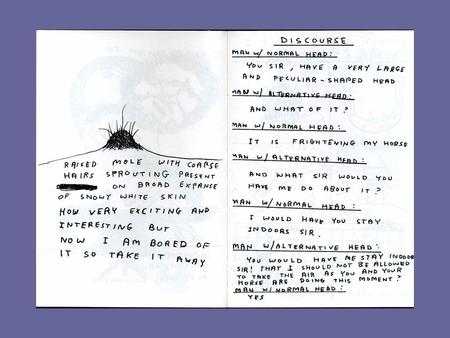 RAISED MOLE WITH COARSE
HAIRS SPROUTING PRESENT
ON BROAD EXPANSE
OF SNOWY WHITE SKIN
HOW VERY EXCITING AND
INTERESTING BUT
NOW I AM BORED OF
IT SO TAKE IT AWAY
DISCOURSE
MAN W/ NORMAL HEAD:
YOU SIR, HAVE A VERY LARGE
AND PECULIAR-SHAPED HEAD
MAN W/ ALTERNATIVE HEAD:
AND WHAT OF IT?
MAN W/ NORMAL HEAD:
IT IS FRIGHTENING MY HORSE
MAN W/ ALTERNATIVE HEAD:
AND WHAT SIR WOULD YOU
HAVE ME DO ABOUT IT?
MAN W/ NORMAL HEAD:
I WOULD HAVE YOU STAY
INDOORS SIR.
MAN W/ALTERNATIVE HEAD:
YOU WOULD HAVE ME STAY INDOORS
SIR! THAT I SHOULD NOT BE ALLOWED
TO TAKE THE AIR AS YOU AND YOUR
HORSE ARE DOING THIS MOMENT?
MAN W/ NORMAL HEAD:
YES